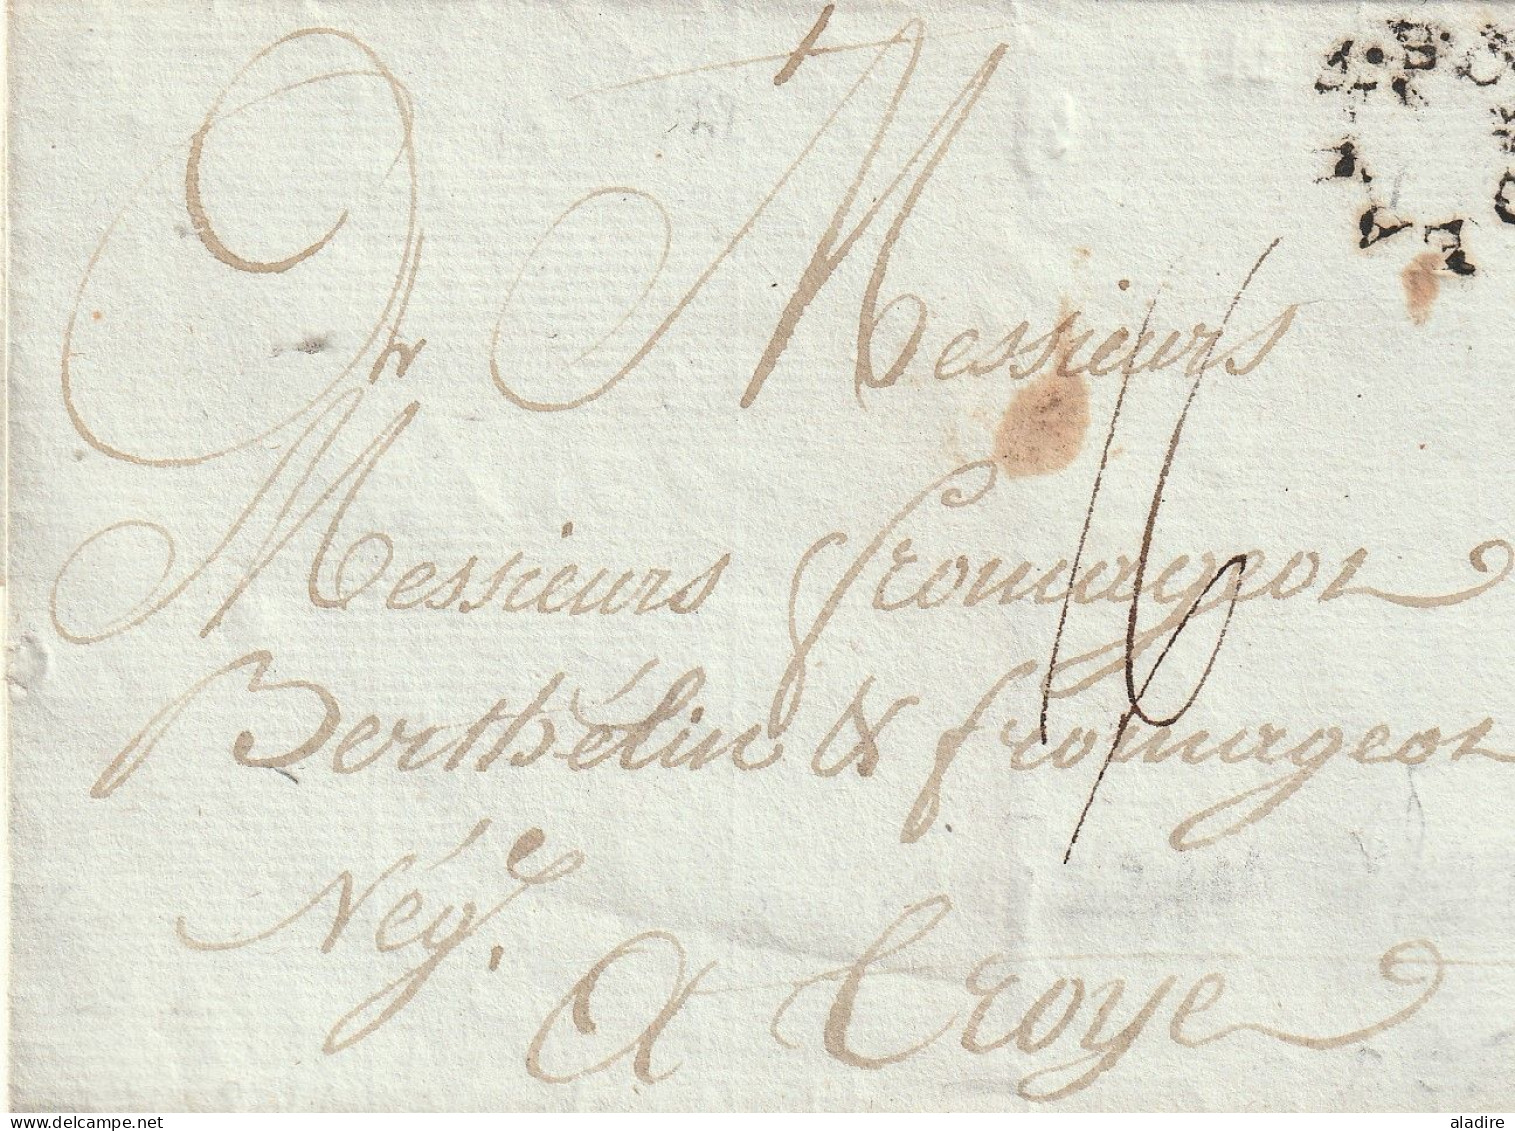 Messieurs
Messieurs fromageot
Berthélin & fromageot
Négᵉ.
A Troye
16
aladire